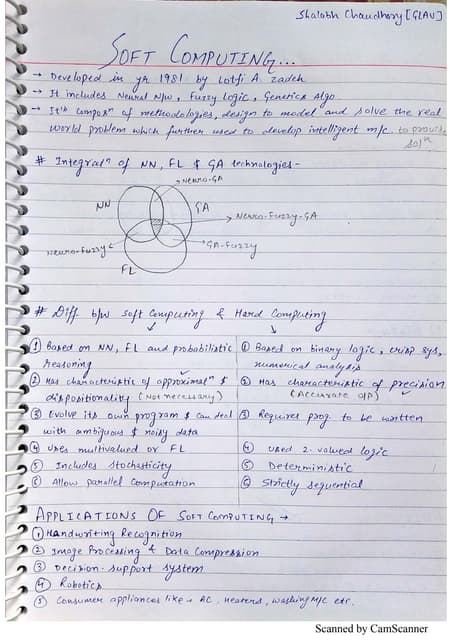 Shalabh Chaudhary [GLAU]
SOFT COMPUTING...
→ Developed in yr 1981 by Lotfi A. zadeh
→ It includes Neural N/w, Fuzzy Logic, Genetics Algo
→ It's composn of methodologies, design to model and solve the real
world problem which further used to develop intelligent m/c. to provide
soln
# Integraln of NN, FL & GA technologies-
Neuro-GA
NN
GA
Neuro-Fuzzy-GA
Neuro-Fuzzy
GA-Fuzzy
FL
# Diff b/w Soft Computing & Hard Computing
① Based on NN, FL and probabilistic
reasoning
① Based on binary logic, crisp sys,
numerical analysis
② Has characteristic of approximaln &
dispositionality (Not necessary)
② Has characteristic of precision
(Accurate o/p)
③ Evolve its own program & can deal
with ambiguous & noisy data
③ Requires prog. to be written
④ Uses multivalued or FL
④ Used 2-valued logic
⑤ Includes stochasticity
⑤ Deterministic
⑥ Allow parallel Computation
⑥ Strictly sequential
APPLICATIONS OF SOFT COMPUTING →
① Handwriting Recognition
② Image Processing & Data Compression
③ Decision-support system
④ Robotics
⑤ Consumer appliances like → AC, Heaters, Washing M/c etc.
Scanned by CamScanner